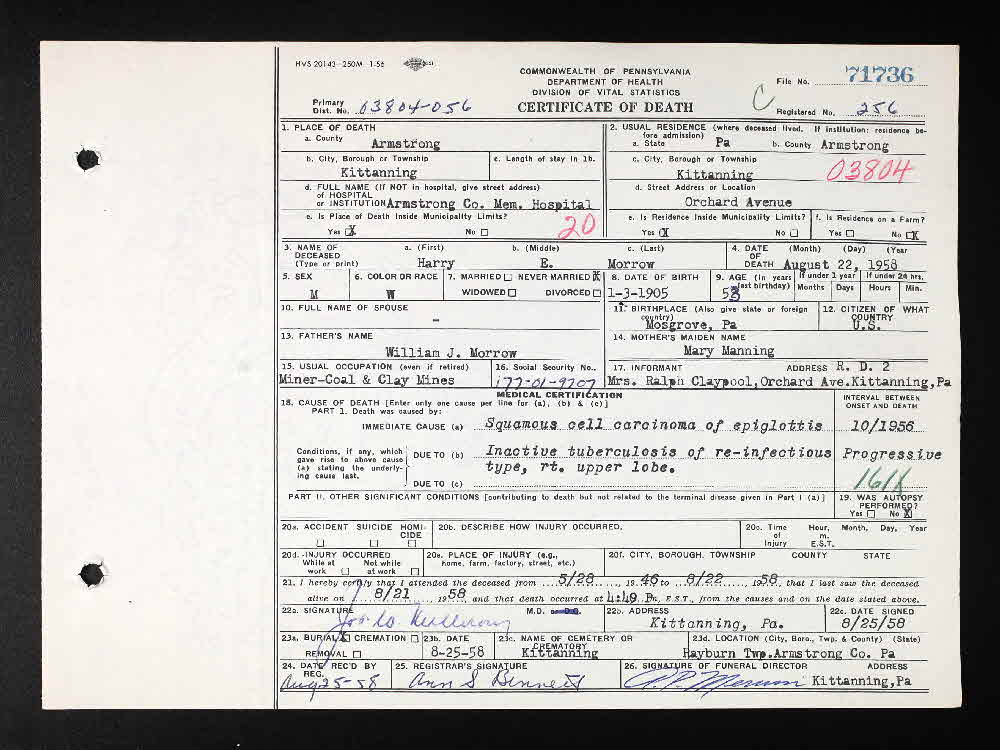 HVS 20143-250M 1-56
COMMONWEALTH OF PENNSYLVANIA
DEPARTMENT OF HEALTH
DIVISION OF VITAL STATISTICS
CERTIFICATE OF DEATH
File No. 71736
Primary Dist. No. 03804-056
C
Registered No. 256
1. PLACE OF DEATH
a. County Armstrong
b. City, Borough or Township Kittanning
c. Length of stay in 1b.
d. FULL NAME (If NOT in hospital, give street address) of HOSPITAL or INSTITUTION Armstrong Co. Mem. Hospital
e. Is Place of Death Inside Municipality Limits? Yes X No
20
2. USUAL RESIDENCE (where deceased lived. If institution: residence before admission)
a. State Pa b. County Armstrong
c. City, Borough or Township Kittanning
03804
d. Street Address or Location Orchard Avenue
e. Is Residence Inside Municipality Limits? Yes X No
f. Is Residence on a Farm? Yes No X
3. NAME OF DECEASED (Type or print) a. (First) Harry b. (Middle) E. c. (Last) Morrow
4. DATE OF DEATH (Month) (Day) (Year) August 22, 1958
5. SEX M
6. COLOR OR RACE W
7. MARRIED NEVER MARRIED X WIDOWED DIVORCED
8. DATE OF BIRTH 1-3-1905
9. AGE (In years last birthday) 53 If under 1 year Months Days If under 24 hrs. Hours Min.
10. FULL NAME OF SPOUSE -
11. BIRTHPLACE (Also give state or foreign country) Mosgrove, Pa
12. CITIZEN OF WHAT COUNTRY U.S.
13. FATHER'S NAME William J. Morrow
14. MOTHER'S MAIDEN NAME Mary Manning
15. USUAL OCCUPATION (even if retired) Miner-Coal & Clay Mines
16. Social Security No. 177-01-9707
17. INFORMANT ADDRESS R. D. 2
Mrs. Ralph Claypool, Orchard Ave. Kittanning, Pa
MEDICAL CERTIFICATION
18. CAUSE OF DEATH [Enter only one cause per line for (a), (b) & (c)]
PART I. Death was caused by:
INTERVAL BETWEEN ONSET AND DEATH
IMMEDIATE CAUSE (a) Squamous cell carcinoma of epiglottis 10/1956
Conditions, if any, which gave rise to above cause (a) stating the underlying cause last.
DUE TO (b) Inactive tuberculosis of re-infectious Progressive
type, rt. upper lobe.
DUE TO (c)
161X
PART II. OTHER SIGNIFICANT CONDITIONS [contributing to death but not related to the terminal disease given in Part I (a)]
19. WAS AUTOPSY PERFORMED? Yes No X
20a. ACCIDENT SUICIDE HOMICIDE
20b. DESCRIBE HOW INJURY OCCURRED.
20c. Time of Injury Hour, m. E.S.T. Month, Day, Year
20d. INJURY OCCURRED While at work Not while at work
20e. PLACE OF INJURY (e.g., home, farm, factory, street, etc.)
20f. CITY, BOROUGH, TOWNSHIP COUNTY STATE
21. I hereby certify that I attended the deceased from 5/28, 1946 to 8/22, 1958, that I last saw the deceased
alive on 8/21 1958, and that death occurred at 4:40 P m, E.S.T., from the causes and on the date stated above.
22a. SIGNATURE M.D.
22b. ADDRESS Kittanning, Pa.
22c. DATE SIGNED 8/25/58
23a. BURIAL X CREMATION REMOVAL
23b. DATE 8-25-58
23c. NAME OF CEMETERY OR CREMATORY Kittanning
23d. LOCATION (City, Boro., Twp. & County) (State) Rayburn Twp. Armstrong Co. Pa
24. DATE REC'D BY REG. Aug 25-58
25. REGISTRAR'S SIGNATURE Ann S Bennett
26. SIGNATURE OF FUNERAL DIRECTOR ADDRESS
Kittanning, Pa